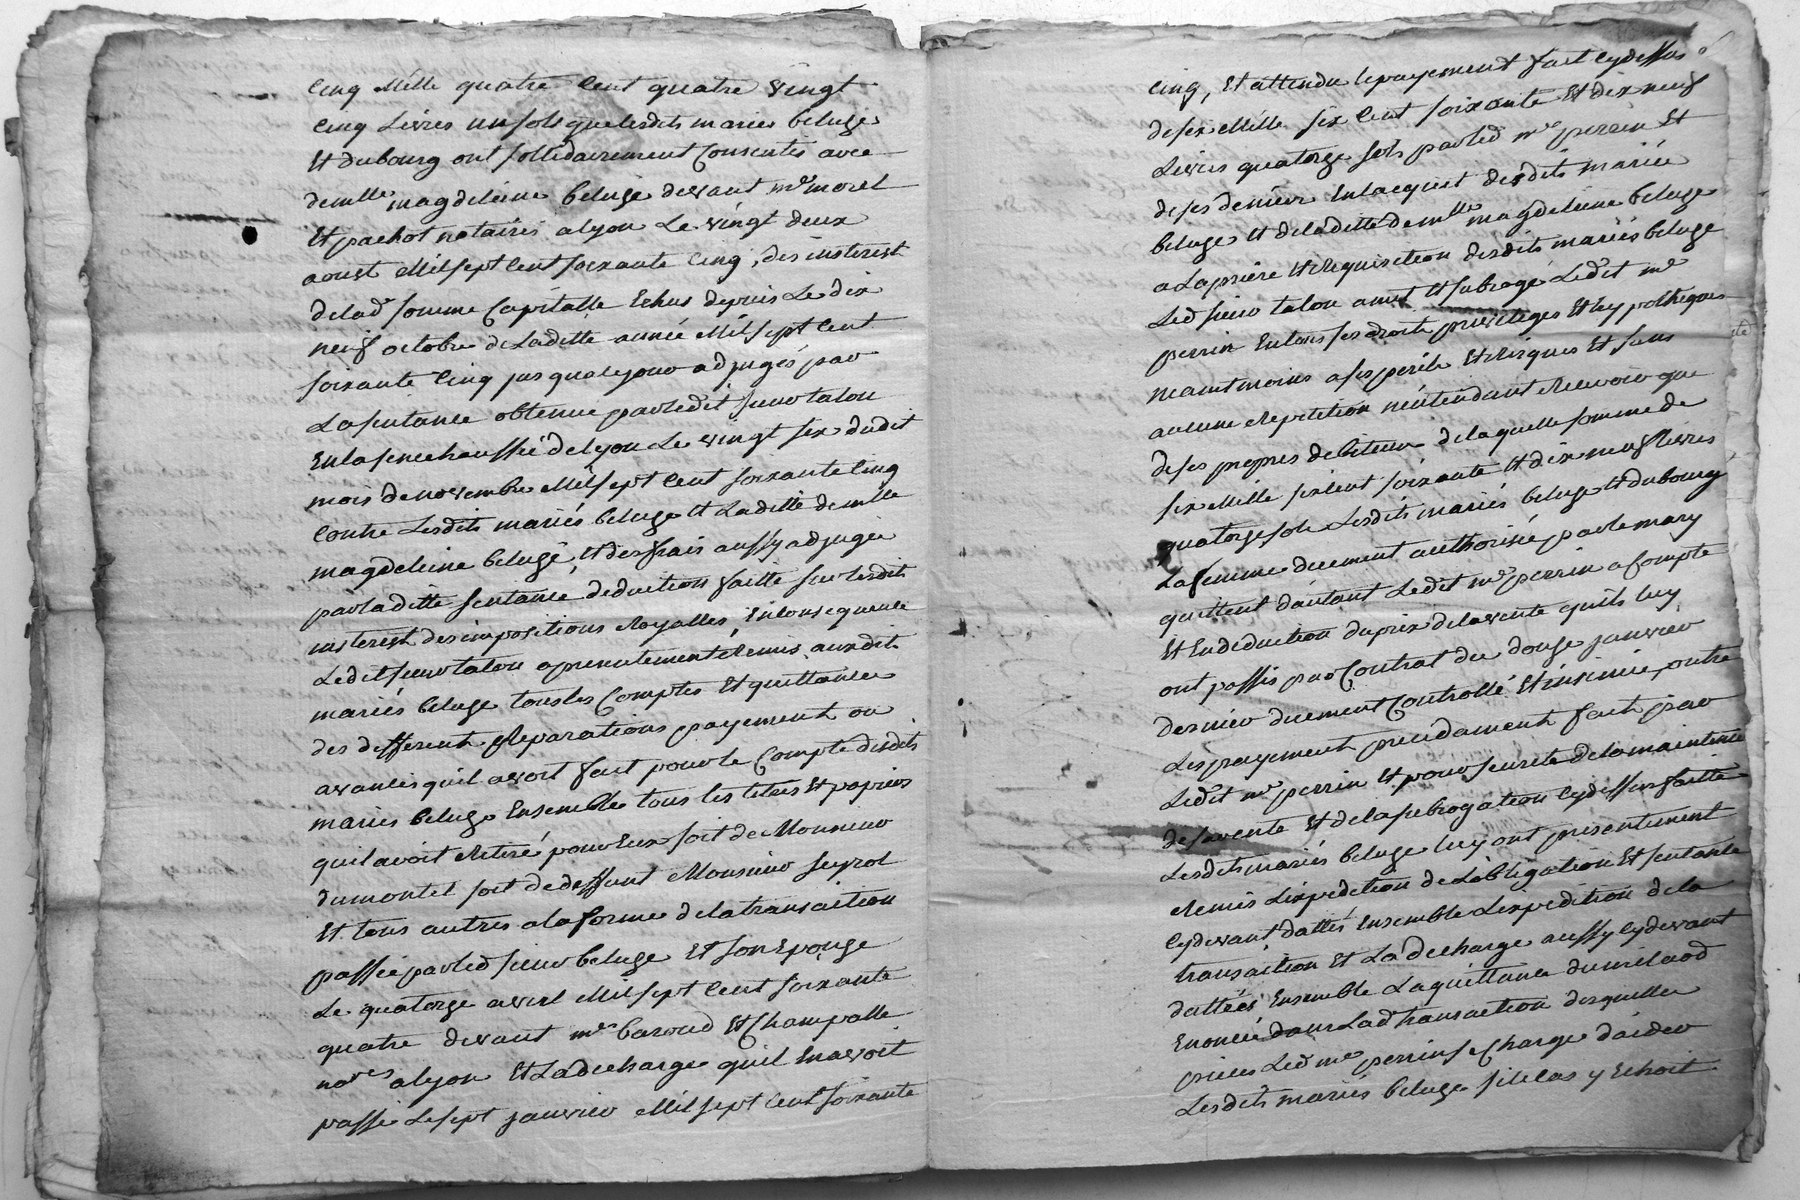 Cinq Mille quatre Cent quatre vingt
Cinq Livres un sols que lesdits mariés beluge
Et dubourg ont sollidairement Consentis avec
demlle magdeleine beluge devant me morel
Et pachot notaires a lyon Le vingt deux
aoust Mil sept Cent soixante Cinq, des interest
de lad somme Capitalle Echus depuis Le dix
neuf octobre de Laditte année Mil sept Cent
soixante Cinq jusqua le jour adjugés par
La sentance obtenue par ledit sieur talon
En la senechaussée de lyon Le vingt six dudit
mois de novembre Mil sept Cent soixante Cinq
Contre Lesdits mariés beluge Et Laditte demlle
magdeleine beluge, Et des frais aussy adjugés
par laditte sentance deduction faitte sur lesdits
interest des impositions Royalles, En Consequence
Ledit sieur talon a presentement Remis auxdits
mariés beluge tous les Comptes Et quittances
des differents Reparations payement ou
avances quil avoit fait pour le Compte desdits
mariés beluge Ensemble tous les titres Et papiers
quil avoit Retiré pour Eux soit de Monsieur
dumontet soit de deffunt Monsieur seyrol
Et tous autres a la forme de la transaction
passée par led sieur beluge Et son Epouze
Le quatorze avril Mil sept Cent soixante
quatre devant mes baroud Et Champalle
nores a lyon Et La decharge quil En avoit
passé Le sept janvier Mil sept Cent soixante
Cinq, Et attendu le payement fait Cy dessus
de six Mille six Cent soixante Et dix neuf
Livres quatorze sols par led me perrin Et
de ses deniers En lacquit desdits mariés
beluge Et de laditte demlle magdeleine beluge
a La priere Et Requisition desdits mariés beluge
Led sieur talon a mis Et subrogé Ledit me
perrin En tous ses droits privileges Et hypotheques
neantmoins a ses perils Et Risques Et sans
aucune Repetition n'entendant Recevoir que
de ses propres debiteurs de laquelle somme de
six Mille six Cent soixante Et dix neuf Livres
quatorze sols Lesdits mariés beluge Et dubourg
La femme duement authorisée par le mary
quittent d'autant Ledit me perrin a Compte
Et En deduction du prix de la vente quils luy
ont passés par Contrat du douze janvier
dernier duement Controllé Et insinué, outre
Les payement precedament faits par
Ledit me perrin Et pour seureté de la maintenue
de sa vente Et de la subrogation Cy dessus faitte
Lesdits mariés beluge luy ont presentement
Remis L'expedition de L'obligation Et sentance
Cy devant dattés Ensemble L'expedition de la
transaction Et La decharge aussy Cy devant
dattées Ensemble La quittance
Enoncée dans Lad transaction desquelles
pieces Led me perrin se Charge d'aider
Lesdits mariés beluge si le Cas y Echoit